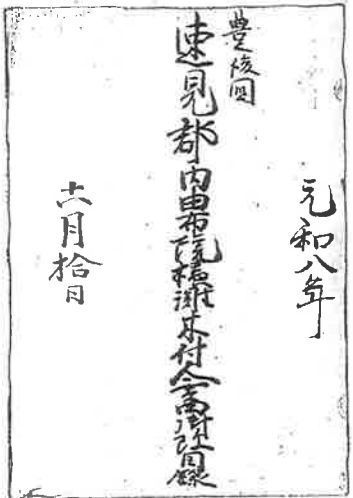 元和八年
豊後国
速見郡内由布院横灘木付会高御改目録
十一月拾日